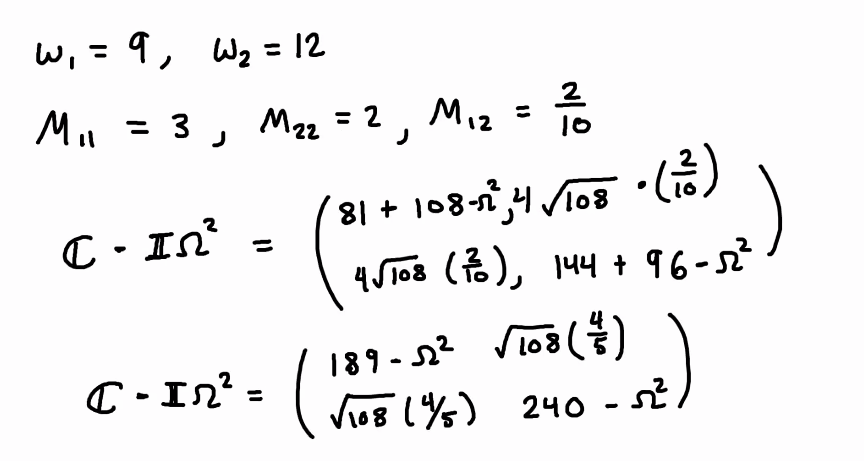 ω₁ = 9, ω₂ = 12
M₁₁ = 3, M₂₂ = 2, M₁₂ = 2/10
ℂ - 𝕀Ω² = (81 + 108-Ω², 4√108 · (2/10) ; 4√108 (2/10), 144 + 96 - Ω²)
ℂ - 𝕀Ω² = (189 - Ω² √108 (4/5) ; √108 (4/5) 240 - Ω²)